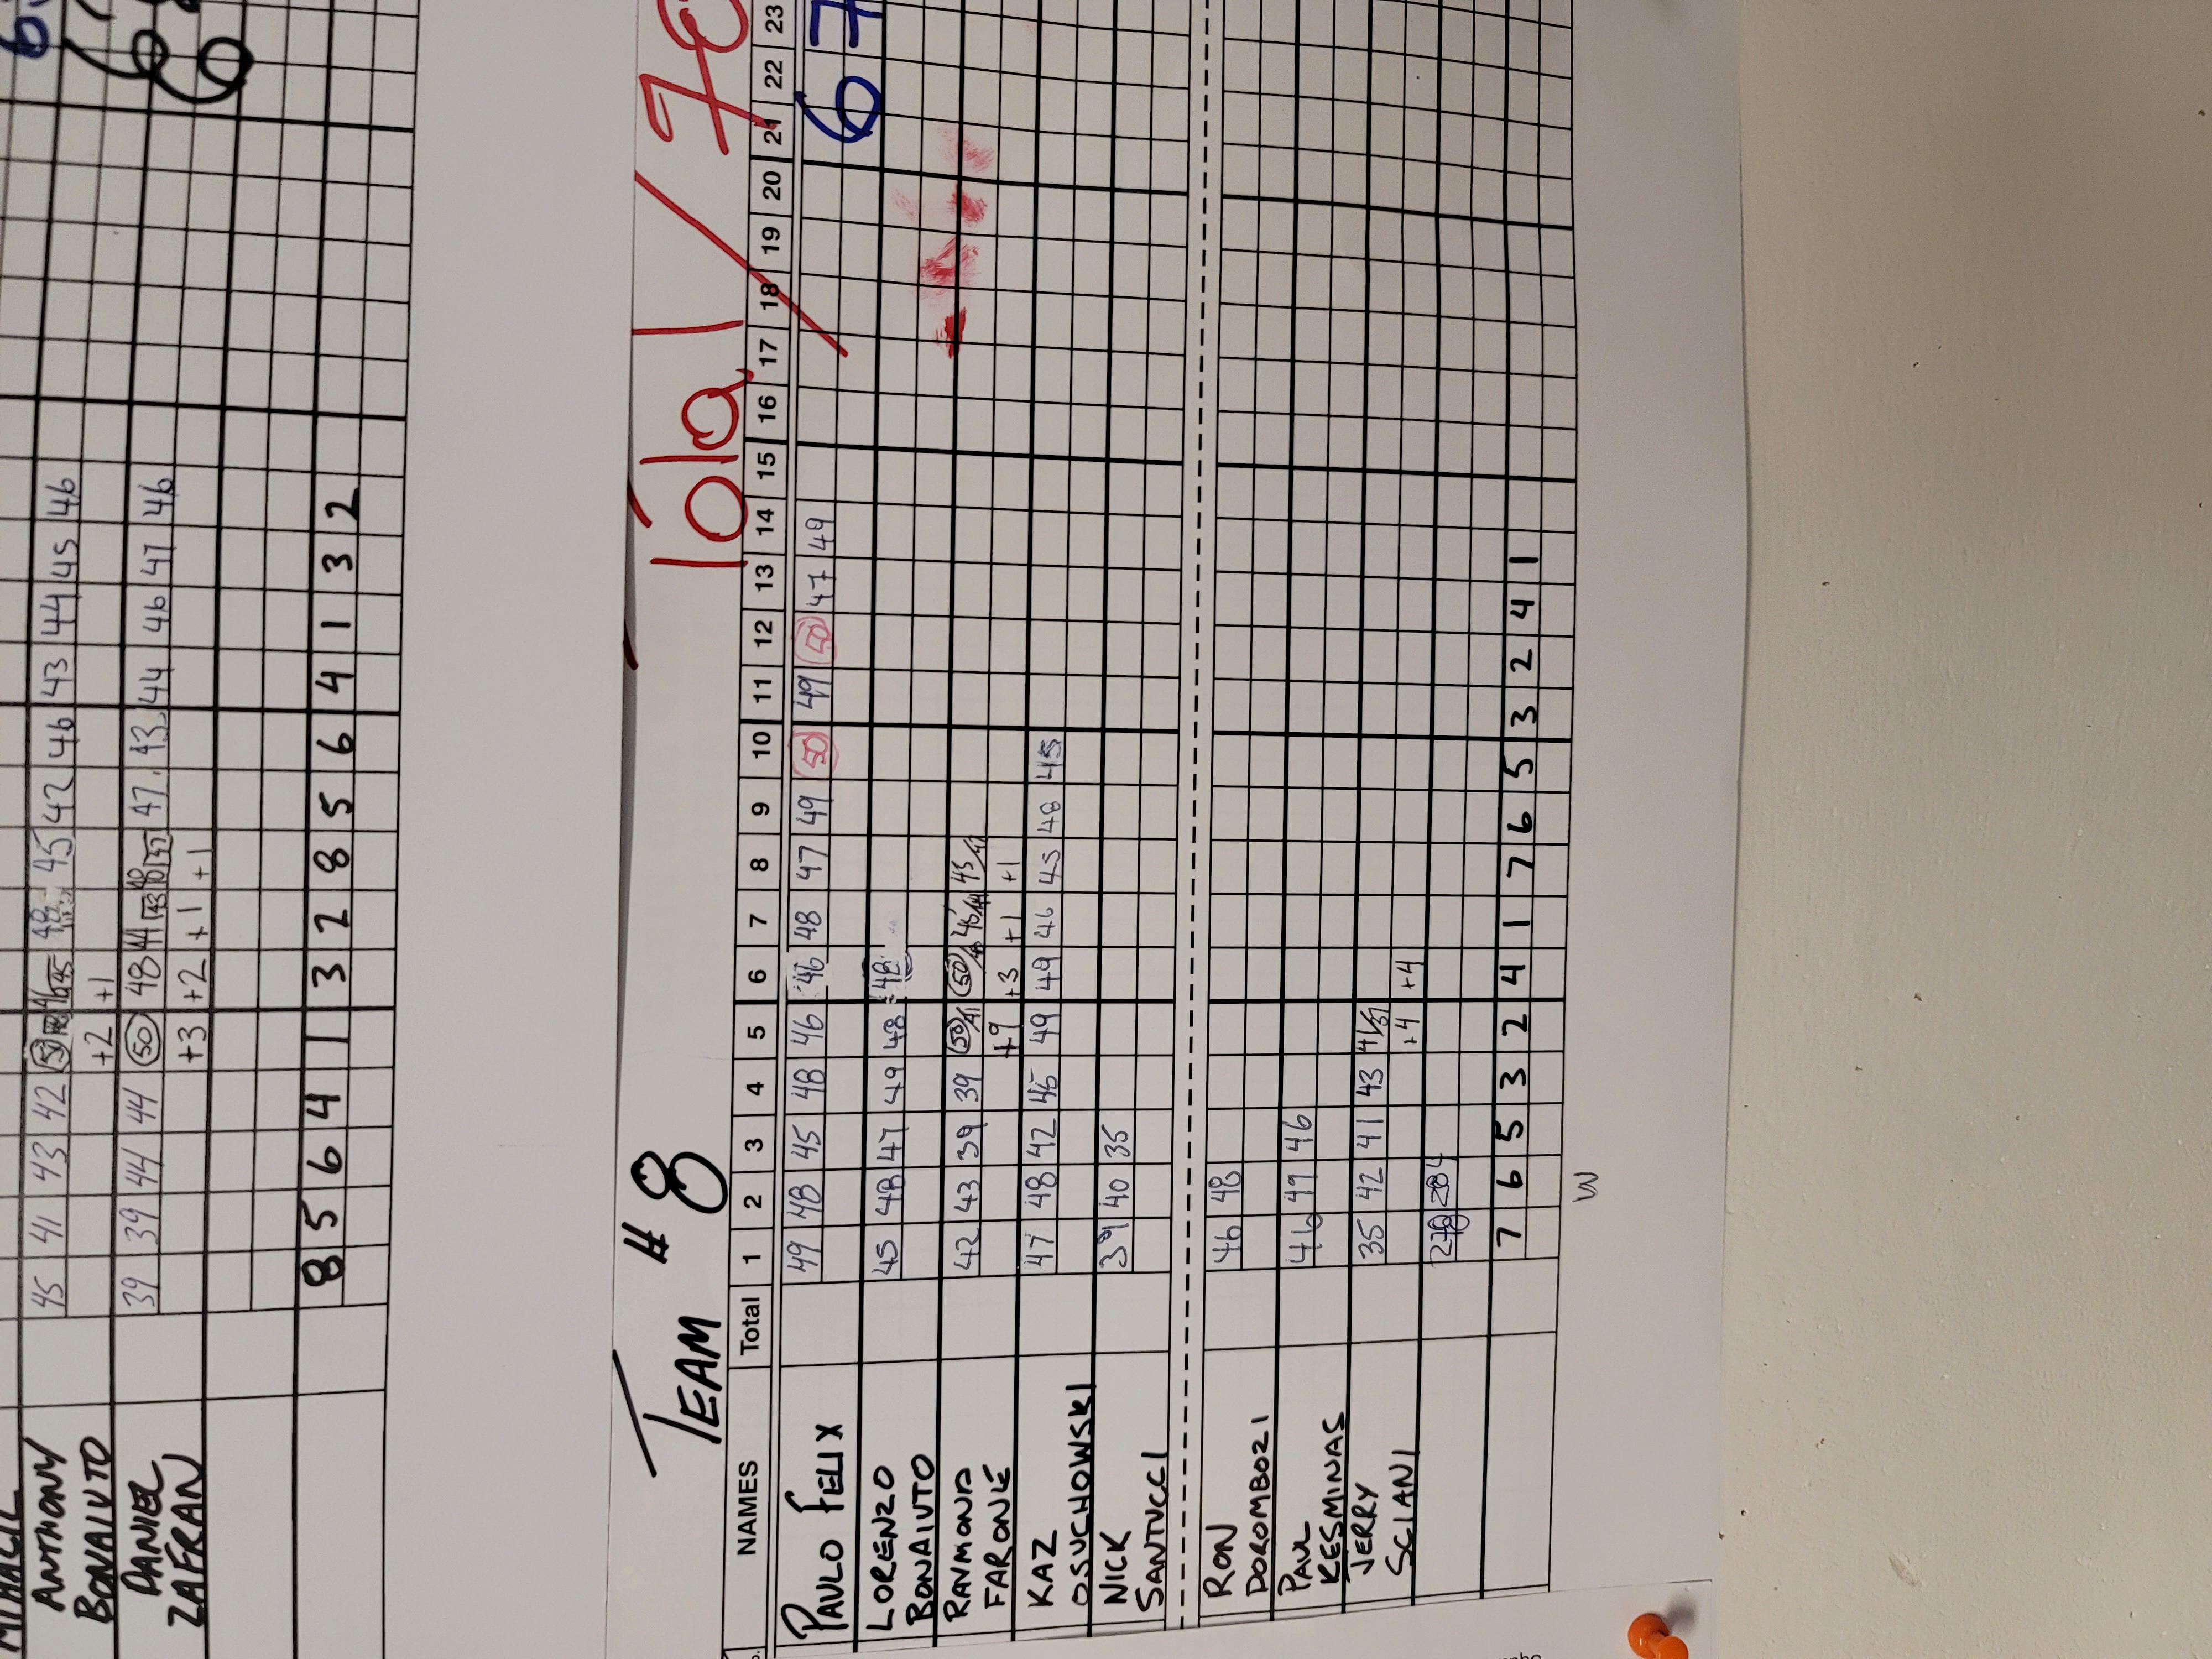 ANTHONY
BONAIUTO
45 41 43 42 45 42 46 43 44 45 46
+2 +1
DANIEL
ZAFRAN
39 39 44 44 50 48 47 43 44 46 47 46
+3 +2 +1 +1
8 5 6 4 1 3 2 8 5 6 4 1 3 2
TEAM # 8
Total /
NAMES Total 1 2 3 4 5 6 7 8 9 10 11 12 13 14 15 16 17 18 19 20 21 22 23
PAULO FELIX 49 48 45 48 46 46 48 47 49 50 49 50 47 49
67
LORENZO
BONAIUTO
45 48 47 49 48 48
RAYMOND
FARONE
42 43 39 39 50/41 50
+9 +3 +1 +1
KAZ
OSUCHOWSKI
47 48 42 45 49 49 46 45 48 45
NICK
SANTUCCI
39 40 35
RON
DOROMBOZI
46 48
PAUL
KESMINAS
46 49 46
JERRY
SCIANI
35 42 41 43 41/37
+4 +4
7 6 5 3 2 4 1 7 6 5 3 2 4 1